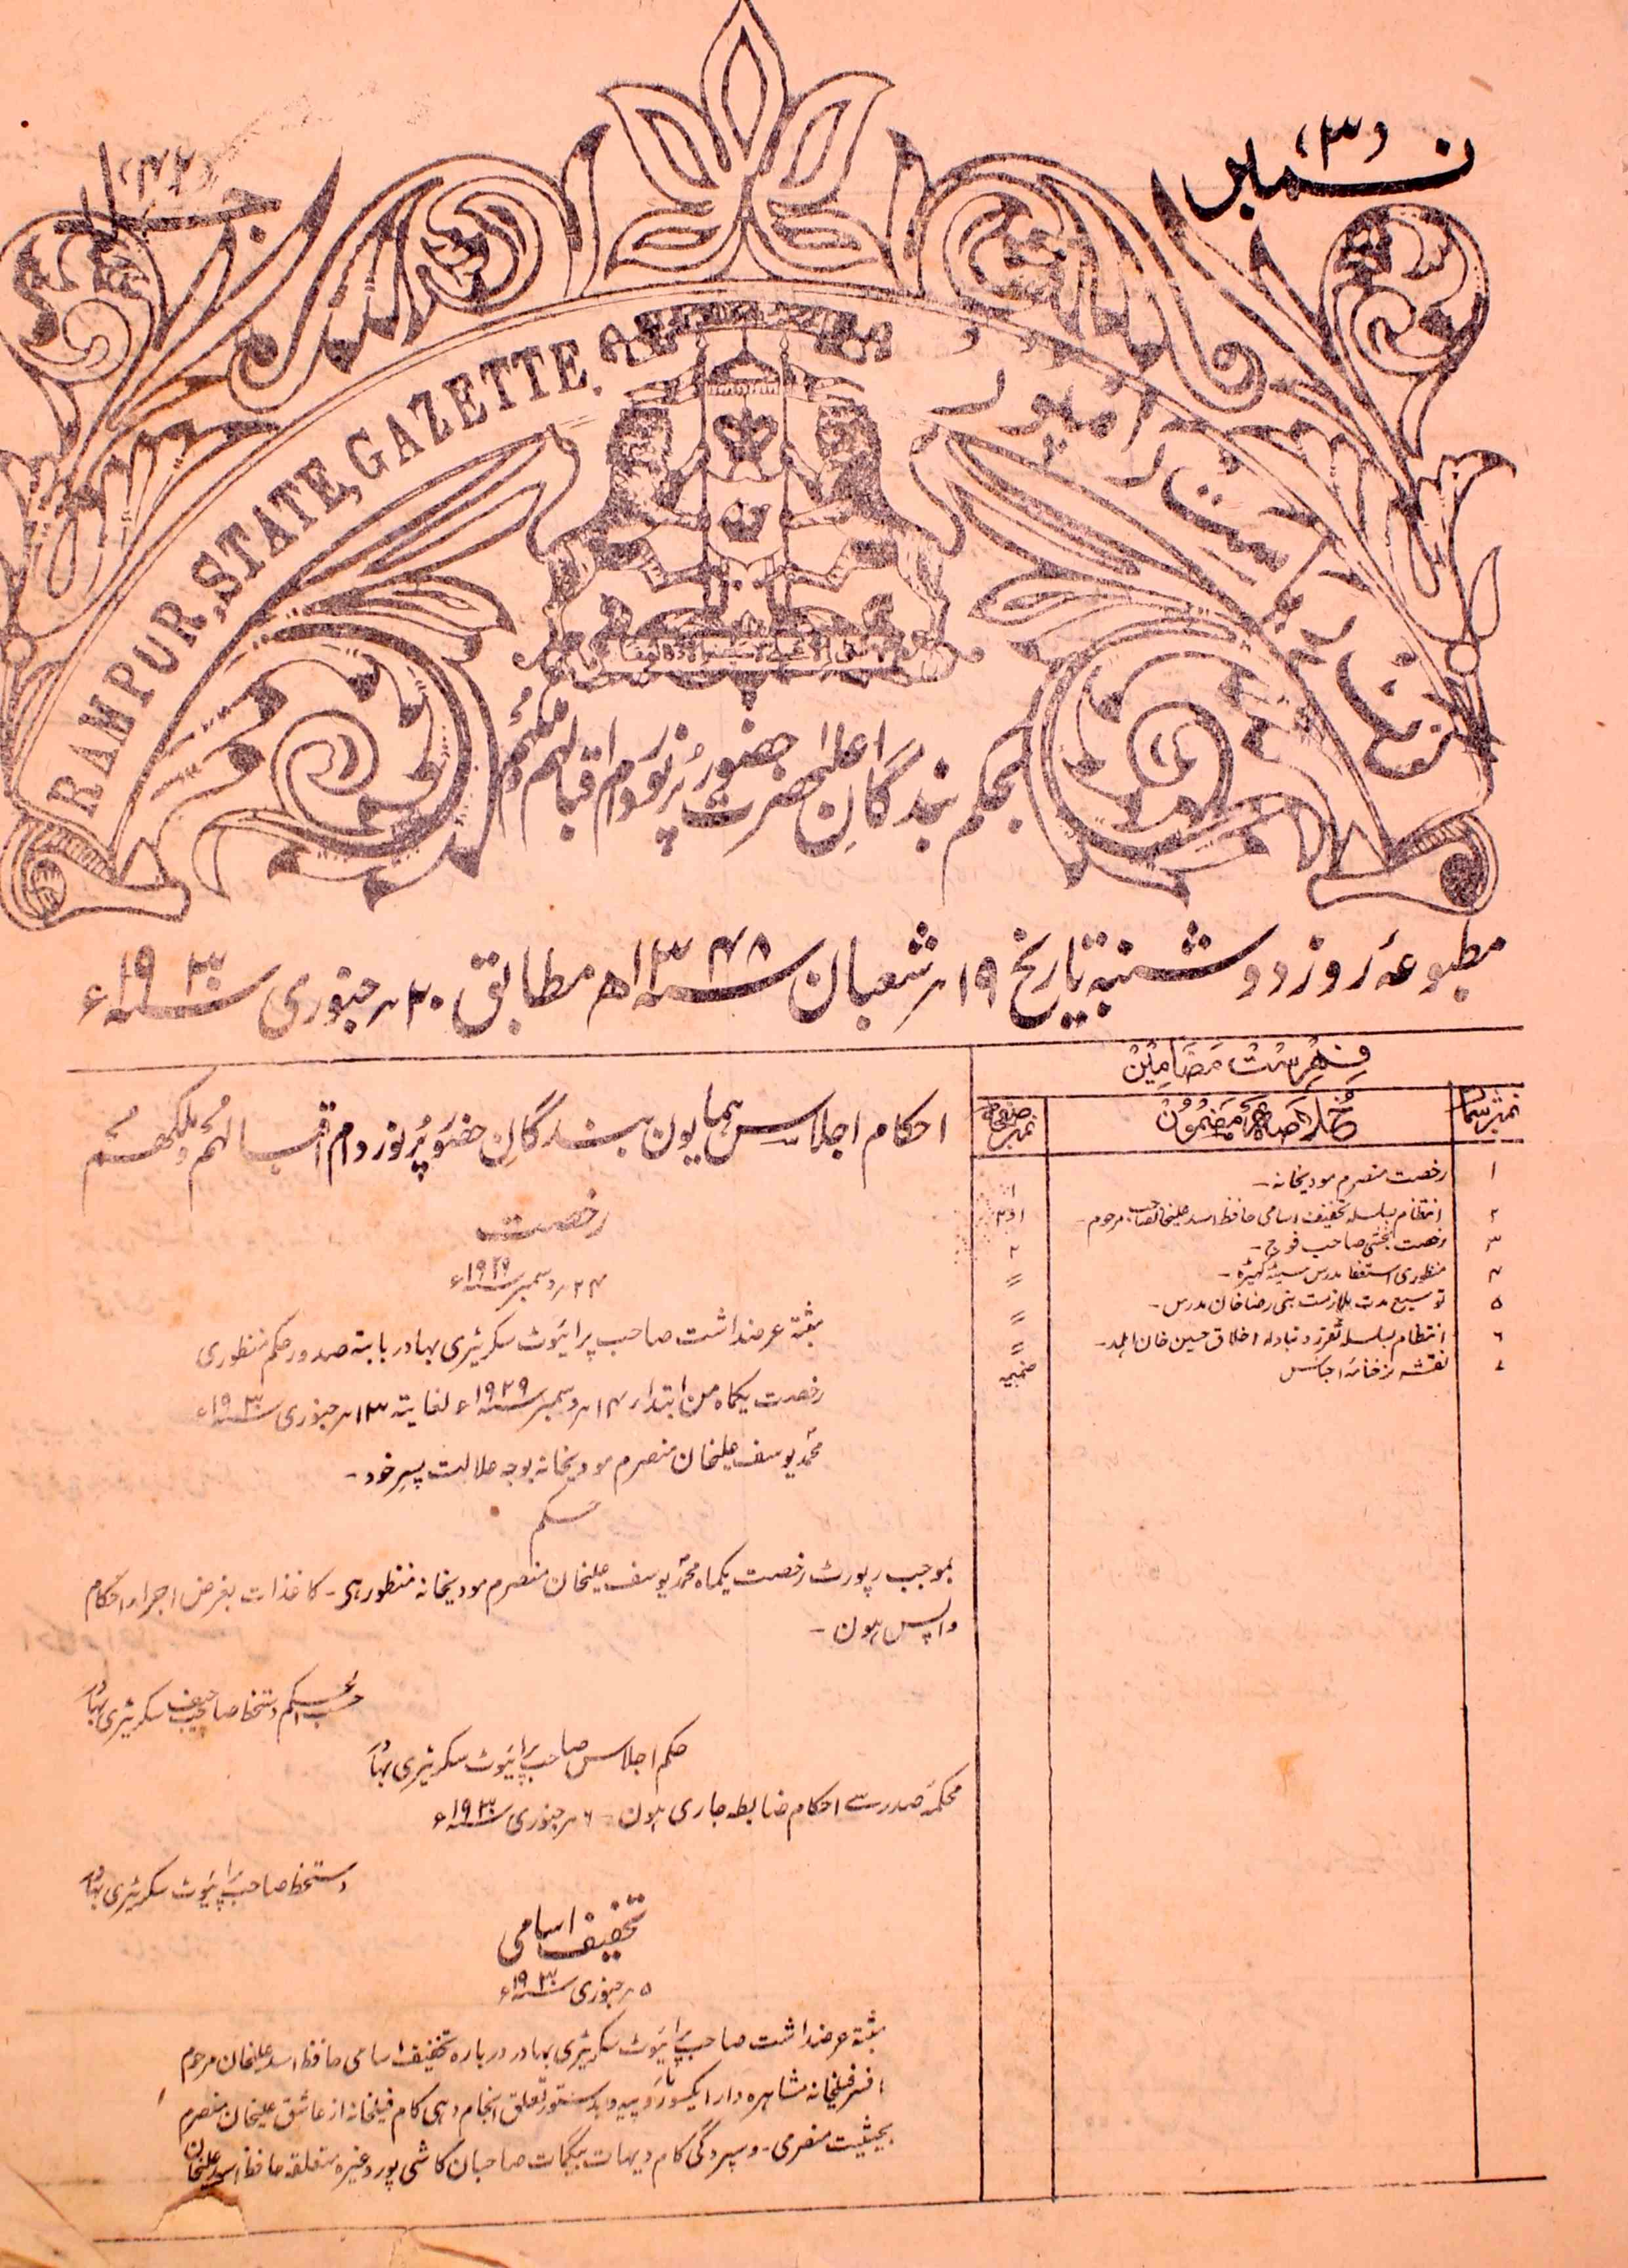 نمبر (۳)
جلد (۴۲)
RAMPUR, STATE, GAZETTE.
گزٹ ریاست رامپور
بحکم بندگانِ اعلیٰحضرت حضور پُرنور دام اقبالہم و ملکہم
مطبوعۂ روز دوشنبہ تاریخ ۱۹؍ شعبان ۱۳۴۸ھ مطابق ۲۰؍ جنوری ۱۹۳۰ء
فہرست مضامین
نمبر شمار خلاصۂ مضمون نمبر صفحہ
۱ رخصت منصرم مودیخانہ۔ ۱
۲ انتظام بسلسلہ تخفیف اسامی حافظ اسد علیخانصاحب مرحوم۔ ۱و۲
۳ رخصت بخشی صاحب فوج۔ ۲
۴ منظوری استعفا مدرس ۔ 〃
۵ توسیع مدت ملازمت بنی رضا خان مدرس۔ 〃
۶ انتظام بسلسلہ تقرر و تبادلہ اخلاق حسین خان اہلمد۔ 〃
۷ نقشہ نرخنامہ اجناس ضمیمہ
احکام اجلاس ہمایون بندگانِ حضور پُرنور دام اقبالہم و ملکہم
رخصت
۲۴؍ دسمبر ۱۹۲۹ء
مثبتہ عرضداشت صاحب پرائیوٹ سکریٹری بہادر بابتہ صدور حکم منظوری
رخصت یکماہ من ابتداء ۱۴؍ دسمبر ۱۹۲۹ء لغایتہ ۱۳؍ جنوری ۱۹۳۰ء
محمد یوسف علیخان منصرم مودیخانہ بوجہ علالت پسرِ خود۔
حکم
بموجب رپورٹ رخصت یکماہ محمد یوسف علیخان منصرم مودیخانہ منظور ہی۔ کاغذات بغرض اجراء احکام
واپس ہون۔
حسب الحکم دستخط صاحب چیف سکریٹری بہادر
حکم اجلاس صاحب پرائیوٹ سکریٹری بہادر
محکمہ صدر سے احکام ضابطہ جاری ہون۔ ۶؍ جنوری ۱۹۳۰ء
دستخط صاحب پرائیوٹ سکریٹری بہادر
تخفیف اسامی
۵؍ جنوری ۱۹۳۰ء
مثبتہ عرضداشت صاحب پرائیوٹ سکریٹری بہادر دربارہ تخفیف اسامی حافظ اسد علیخان مرحوم
افسر فیلخانہ مشاہرہ دار ایکسو روپیہ و بدستور تعلق انجام دہی کام فیلخانہ از عاشق علیخان منصرم
بحیثیت منصرمی۔ و سپردگی کام دیہات بیگمات صاحبان کاشی پور وغیرہ متعلقہ حافظ اسد علیخان